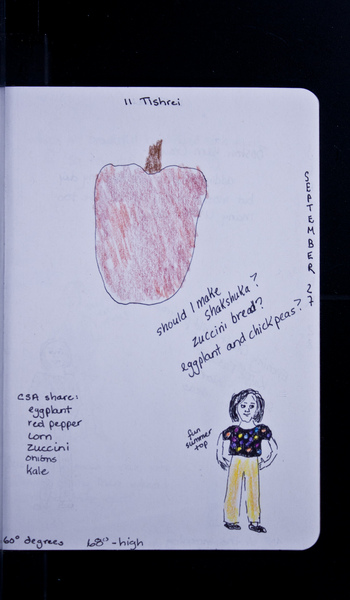 11 Tishrei
SEPTEMBER 27
should I make
Shakshuka?
zuccini bread?
eggplant and chickpeas?
CSA share:
eggplant
red pepper
corn
zuccini
onions
kale
fun
summer
top
60° degrees 68° - high